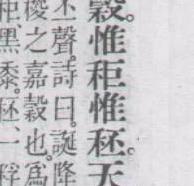 穀。惟秬惟秠。天
丕聲。詩曰。誕降
稷之嘉穀也。爲
秬黑黍。秠、一稃